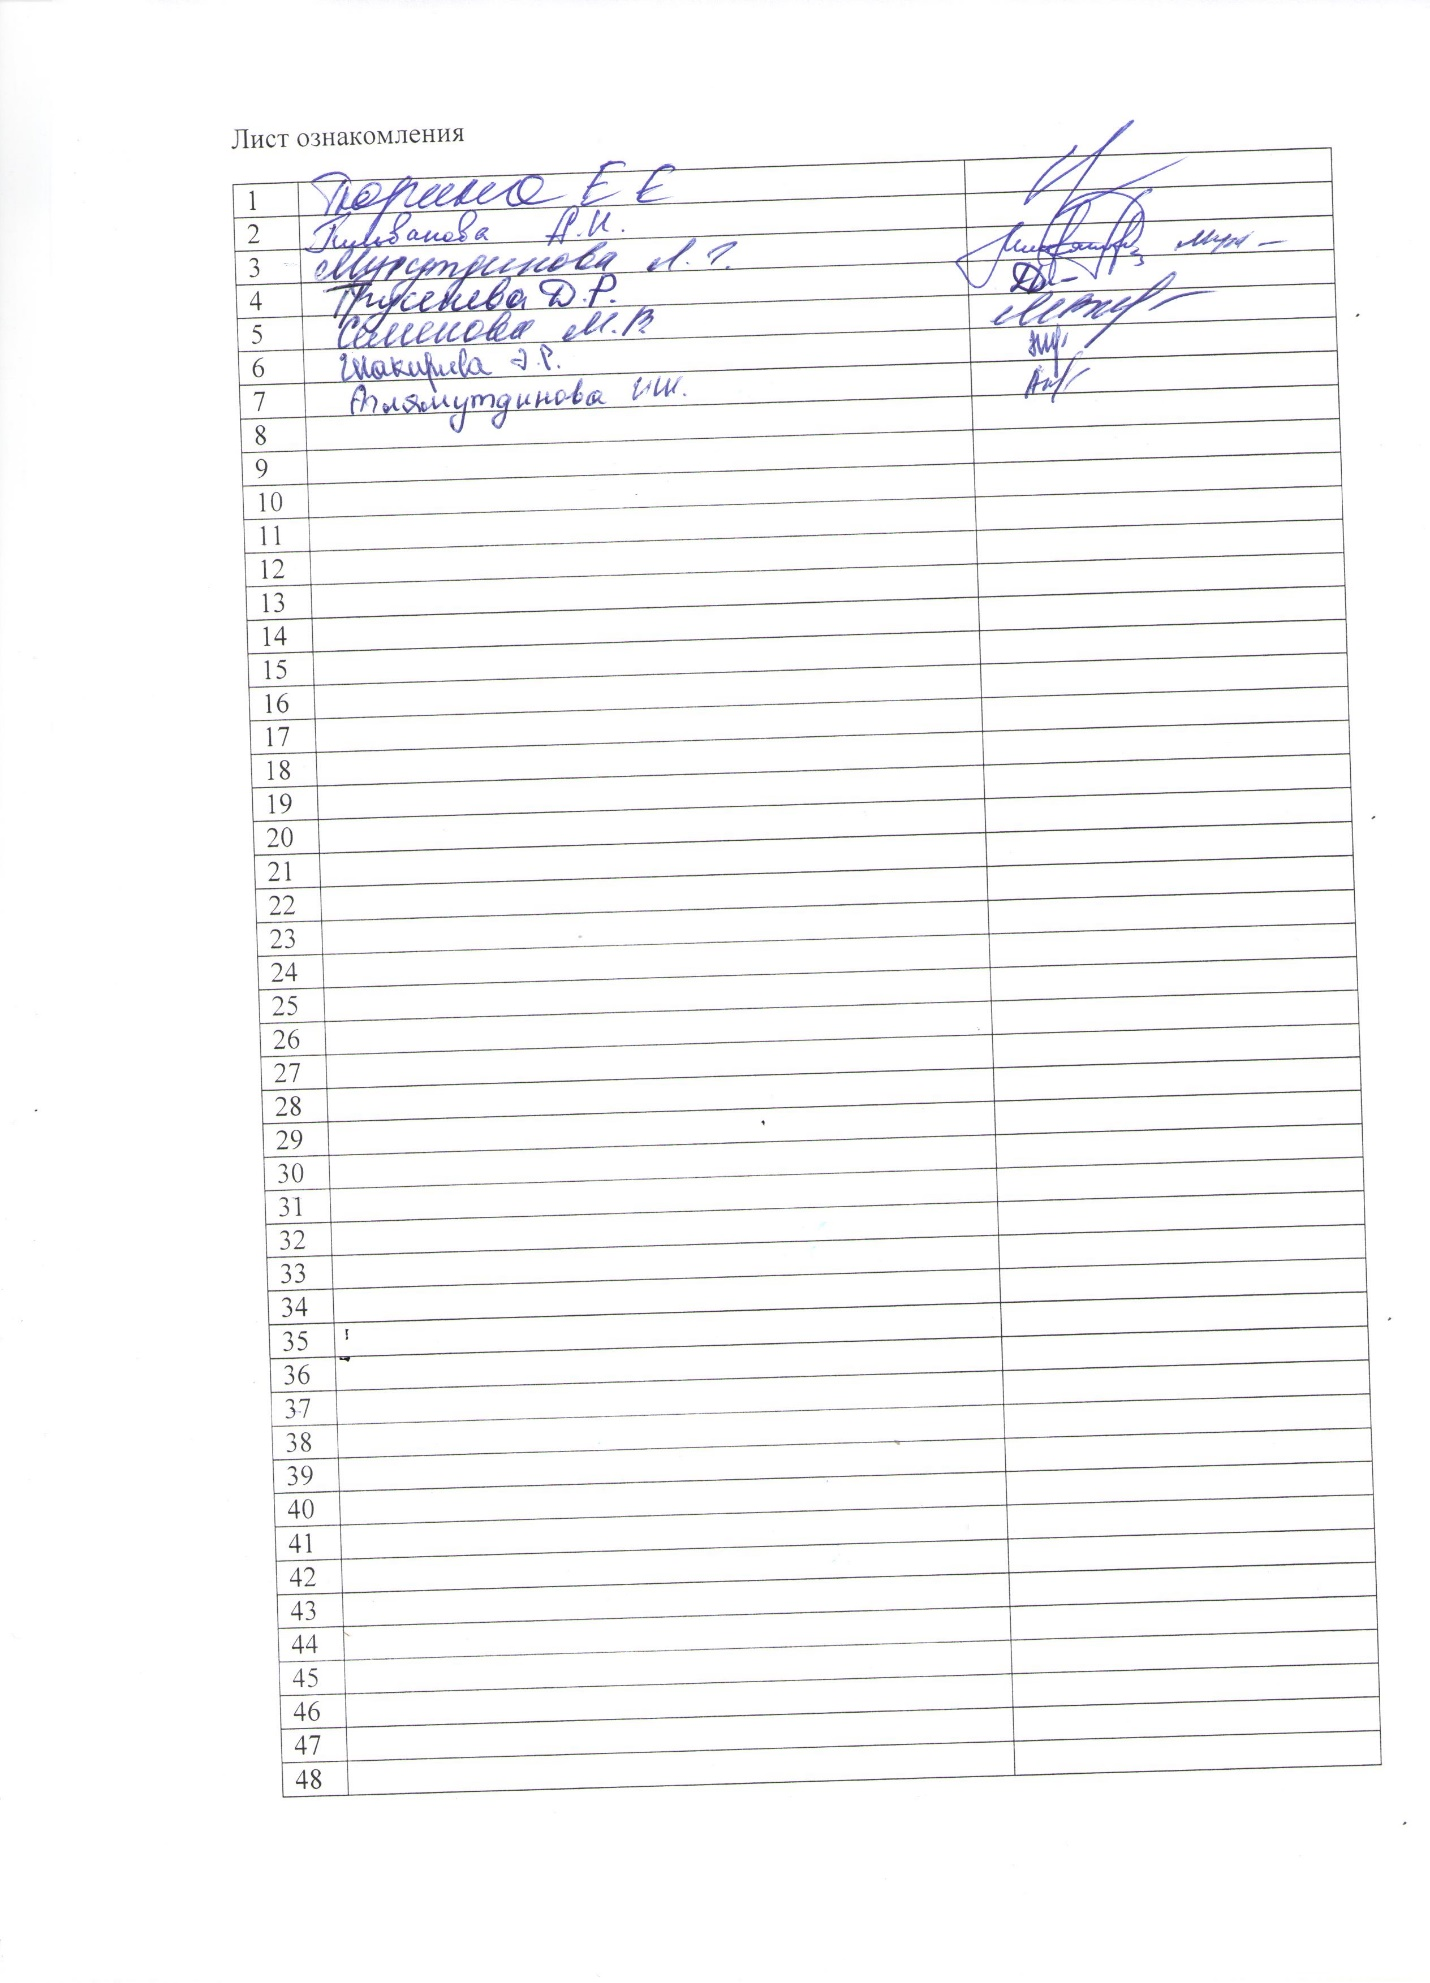 Лист ознакомления
1 Тюрина Е Е
2 А.И.
3 Мурутдинова Л. Г.
4 Д.Р.
5 Семенова М.В
6 Шакирева Э.Р.
7 Алямутдинова И.Ш.
8
9
10
11
12
13
14
15
16
17
18
19
20
21
22
23
24
25
26
27
28
29
30
31
32
33
34
35
36
37
38
39
40
41
42
43
44
45
46
47
48